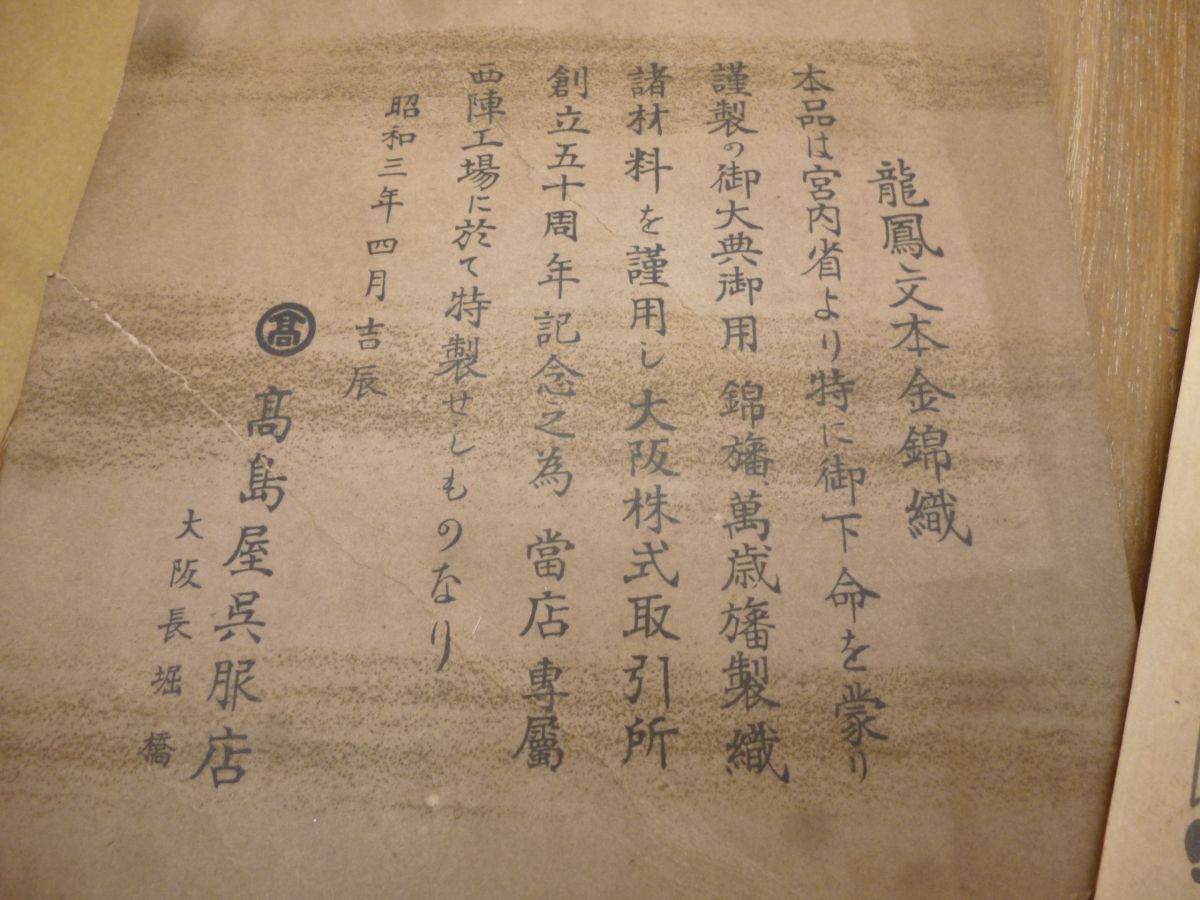 龍鳳文本金錦織
本品は宮内省より特に御下命を蒙り
謹製の御大典御用 錦旛、萬歳旛製織
諸材料を謹用し大阪株式取引所
創立五十周年記念之為 當店專屬
西陣工場に於て特製せしものなり
昭和三年四月吉辰
髙 髙島屋呉服店
大阪長堀橋